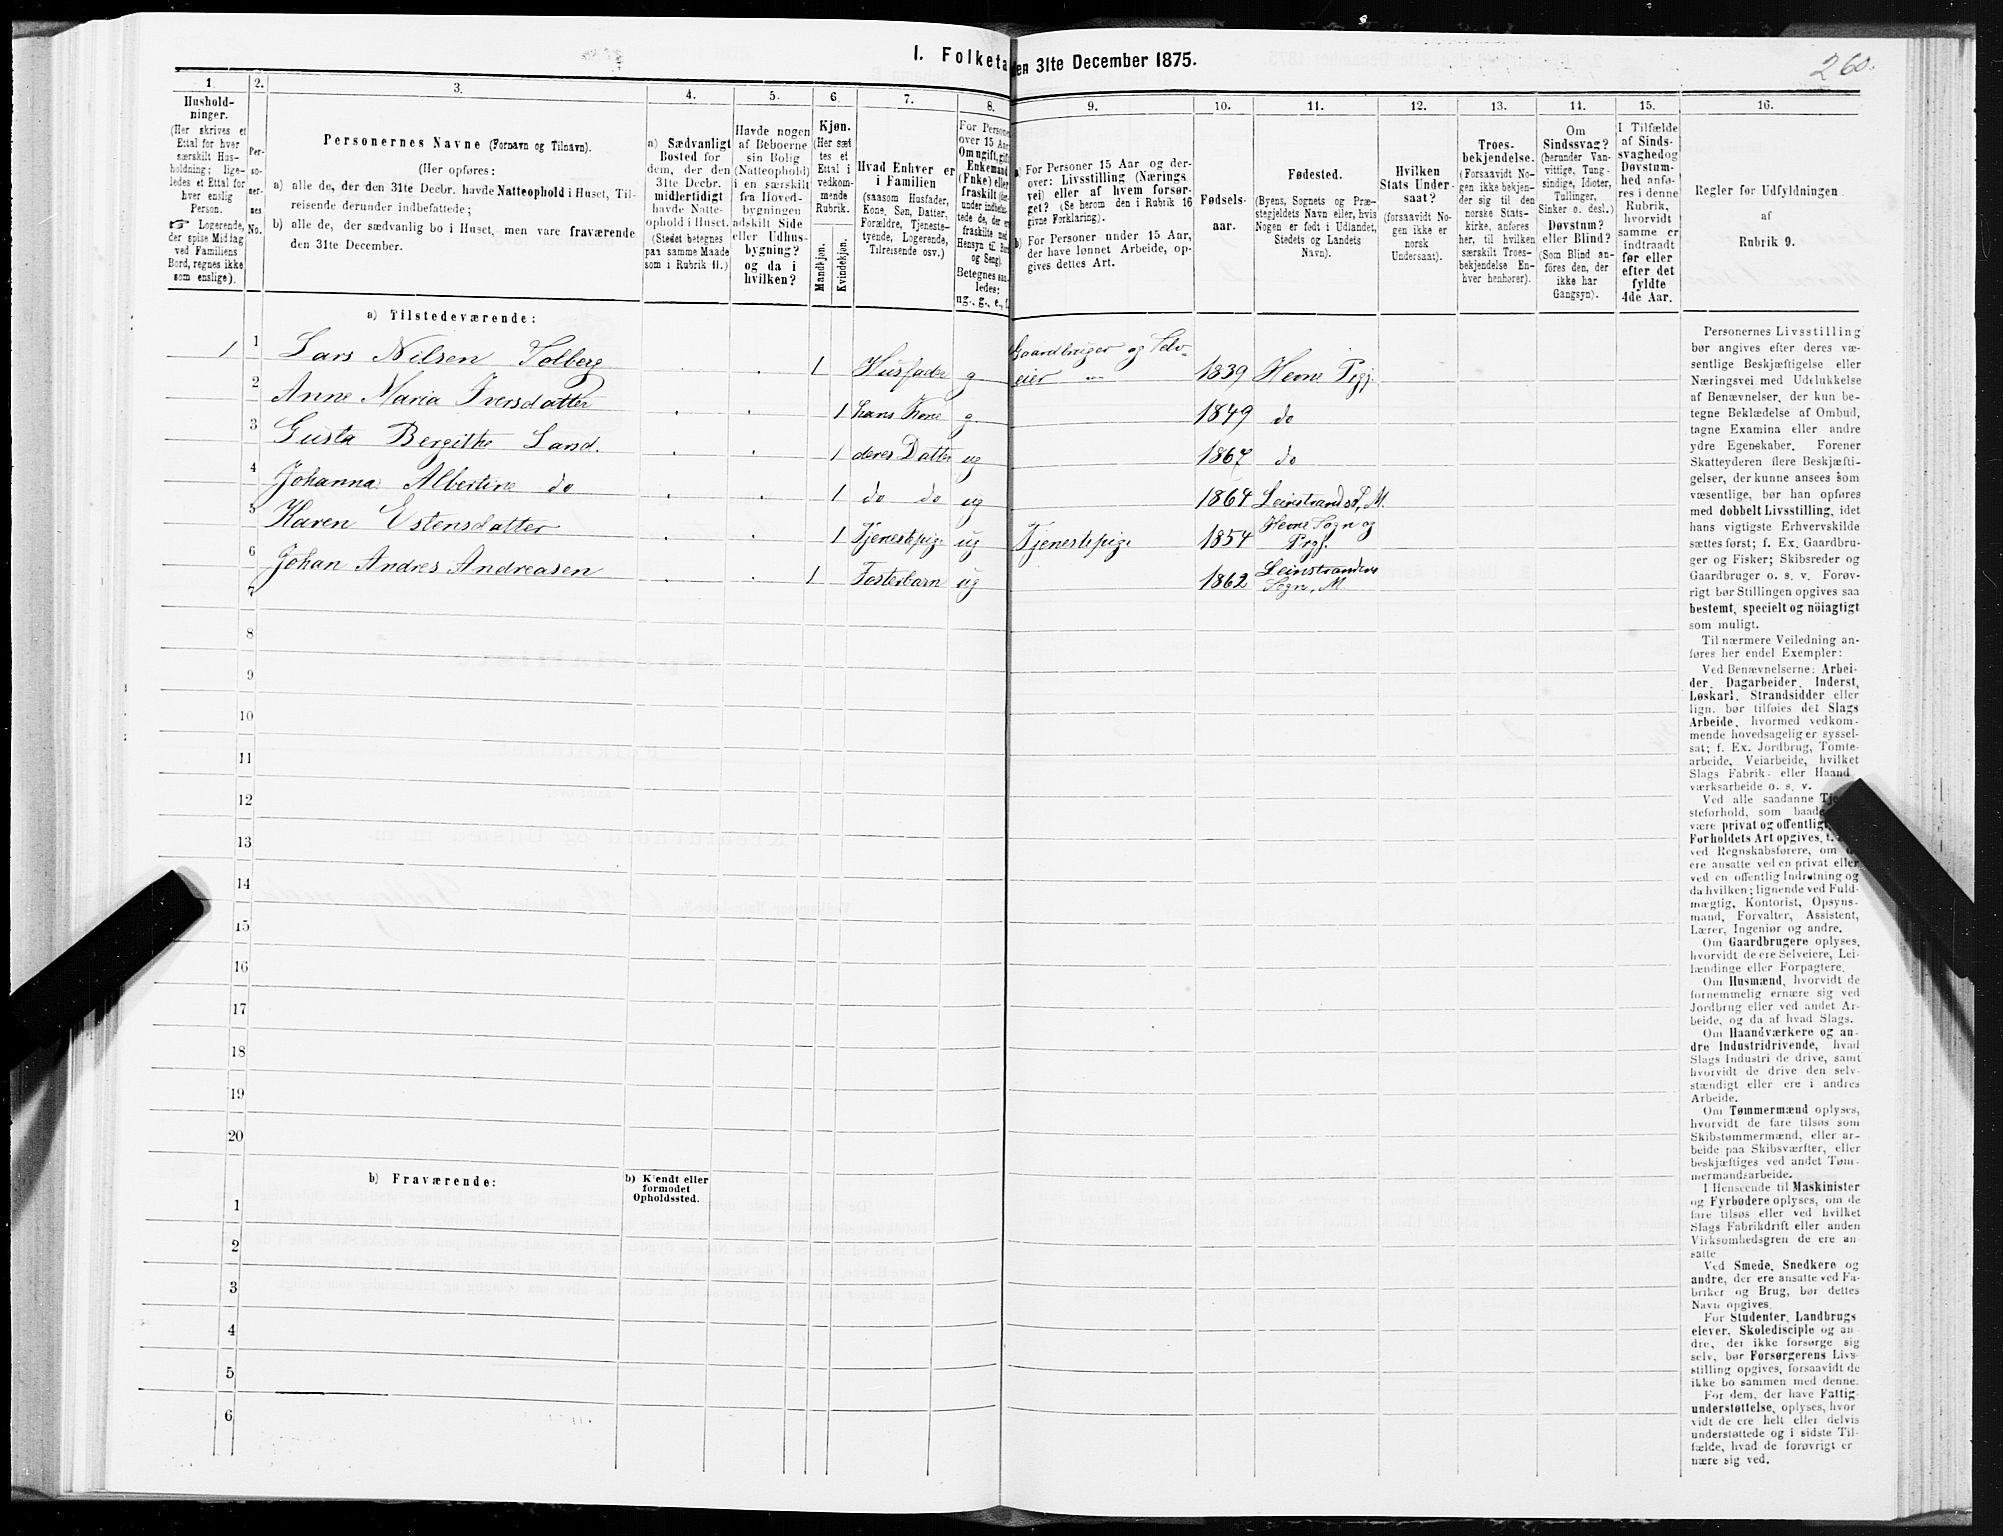 I. Folketa
den 31te December 1875.
260.
1. 2. 3. 4. 5. 6. 7. 8. 9. 10. 11. 12. 13. 14. 15. 16.
Hushold-
ninger.
(Her skrives et
Ettal for hver
særskilt Hus-
holdning; lige-
ledes et Ettal for
hver enslig
Person.
☞ Logerende,
der spise Middag
ved Familiens
Bord, regnes ikke
som enslige).
Per-
so-
ner-
nes
No.
Personernes Navne (Fornavn og Tilnavn).
(Her opføres:
a) alle de, der den 31te Decbr. havde Natteophold i Huset, Til-
reisende derunder indbefattede;
b) alle de, der sædvanlig bo i Huset, men vare fraværende
den 31te December.
a) Sædvanligt
Bosted for
dem, der den
31te Decbr.
midlertidigt
havde Natte-
ophold i Huset.
(Stedet betegnes
paa samme Maade
som i Rubrik 11.)
Havde nogen
af Beboerne
sin Bolig
(Natteophold)
i en særskilt
fra Hoved-
bygningen
adskilt Side
eller Udhus-
bygning?
og da i
hvilken?
Kjøn.
(Her sæt
tes et
Ettal i
vedkom-
mende
Rubrik.
Mandkjøn.
Kvindekjøn.
Hvad Enhver er
i Familien
(saasom Husfader,
Kone, Søn, Datter,
Forældre, Tjeneste-
tyende, Logerende,
Tilreisende osv.)
For Persone
over 15 Aar
Om ugift, gift
Enkemand
(Enke) eller
fraskilt (der
under indbefat-
tede de, der er
fraskilte med
Hensyn til Bord
og Seng).
Betegnes saa-
ledes:
ug., g., e., f.
a) For Personer 15 Aar og der-
over: Livsstilling (Nærings
vei) eller af hvem forsør-
get? (Se herom den i Rubrik 16
givne Forklaring).
b) For Personer under 15 Aar,
der have lønnet Arbeide, op-
gives dettes Art.
Fødsels-
aar.
Fødested.
(Byens, Sognets og Præ-
stegjeldets Navn eller, hvis
Nogen er født i Udlandet,
Stedets og Landets
Navn).
Hvilken
Stats Under-
saat?
(forsaavidt No-
gen ikke er
norsk
Undersaat).
Troes-
bekjendelse.
(Forsaavidt No-
gen ikke bekjen-
der sig til den
norske Stats-
kirke, anføres
her, til hvilken
særskilt Troes-
bekjendelse En-
hver henhører).
Om
Sindssvag?
(herunder Van-
vittige, Tung-
sindige, Idioter,
Tullinger,
Sinker o. desl.)
Døvstum?
eller Blind?
(Som Blind an-
føres den, der
ikke har
Gangsyn).
I Tilfælde
af Sinds-
svaghed og
Døvstum-
hed anfø-
res i denne
Rubrik,
hvorvidt
samme er
indtraadt
før eller
efter det
fyldte
4de Aar.
Regler før Udfyldningen
af
Rubrik 9.
a) Tilstedeværende:
1 1 Lars Nilsen Solberg 1 Husfader g Gaardbruger og Selv-
eier 1839 Hevne Prgj.
2 Anne Maria Iversdatter 1 hans Kone g 1849 do
3 Gusta Bergithe Larsd. 1 deres Datter ug 1867 do
4 Johanna Albertine do 1 do do ug 1864 Leinstrands P, M.
5 Karen Estensdatter 1 Tjenestepige ug Tjenestepige 1854 Hevne Sogn og
Prgj.
6 Johan Andres Andreasen 1 Fosterbarn ug 1862 Leinstrandens
Sogn, M.
7
8
9
10
11
12
13
14
15
16
17
18
19
20
b) Fraværende:
b) Kjendt eller
formodet
Opholdssted.
1
2
3
4
5
6
Personernes Livsstilling
bør angives efter deres væ-
sentlige Beskjæftigelse eller
Næringsvei med Udelukkelse
af Benævnelser, der kun be-
tegne Beklædelse af Ombud,
tagne Examina eller andre
ydre Egenskaber. Forener
Skatteyderen flere Beskjæfti-
gelser, der kunne ansees som
væsentlige, bør han opføres
med dobbelt Livsstilling, idet
hans vigtigste Erhvervskilde
sættes først; f. Ex. Gaardbru-
ger og Fisker; Skibsreder og
Gaardbruger o. s. v. Forøv-
rigt bør Stillingen opgives saa
bestemt, specielt og nöiagtigt
som muligt.
Til nærmere Veiledning an-
føres her endel Exempler:
Ved Benævnelserne: Arbei-
der, Dagarbeider, Inderst,
Løskarl, Strandsidder eller
lign. bør tilføies det Slags
Arbeide, hvormed vedkom-
mende hovedsagelig er syssel-
sat; f. Ex. Jordbrug, Tomte-
arbeide, Veiarbeide, hvilket
Slags Fabrik- eller Haand
værksarbeide o. s. v.
Ved alle saadanne Tje
steforhold, som baade
være privat og offentligt,
Forholdets Art opgives, t.
ved Regnskabsførere, om
ere ansatte ved en privat eller
ved en offentlig Indretning og
da hvilken; lignende ved Fuld-
mægtig, Kontorist, Opsyns-
mand, Forvalter, Assistent,
Lærer, Ingeniør og andre.
Om Gaardbrugere oplyses,
hvorvidt de ere Selveiere, Lei-
lændinge eller Forpagtere.
Om Husmænd, hvorvidt de
fornemmelig ernære sig ved
Jordbrug eller ved andet Ar-
beide, og da af hvad Slags.
Om Haandværkere og an-
dre Industridrivende, hvad
Slags Industri de drive, samt
hvorvidt de drive den selv-
stændigt eller ere i andres
Arbeide.
Om Tømmermænd oplyses,
hvorvidt de fare tilsøs som
Skibstømmermænd, eller ar-
beide paa Skibsværfter, eller
beskjæftiges ved andet Tøm-
mermandsarbeide.
I Henseende til Maskinister
og Fyrbødere oplyses, om de
fare tilsøs eller ved hvilket
Slags Fabrikdrift eller anden
Virksomhedsgren de ere an-
satte
Ved Smede, Snedkere og
andre, der ere ansatte ved Fa-
briker og Brug, bør dettes
Navn opgives.
For Studenter, Landbrugs
elever, Skoledisciple og an
dre, der ikke forsørge sig
selv, bør Forsørgerens Livs-
stilling opgives, forsaavidt de
ikke bo sammen med denne.
For dem, der have Fattig-
understøttelse, oplyses, hvor
vidt de ere helt eller delvis
understøttede og i sidste Til-
fælde, hvad de forøvrigt er
nære sig ved.